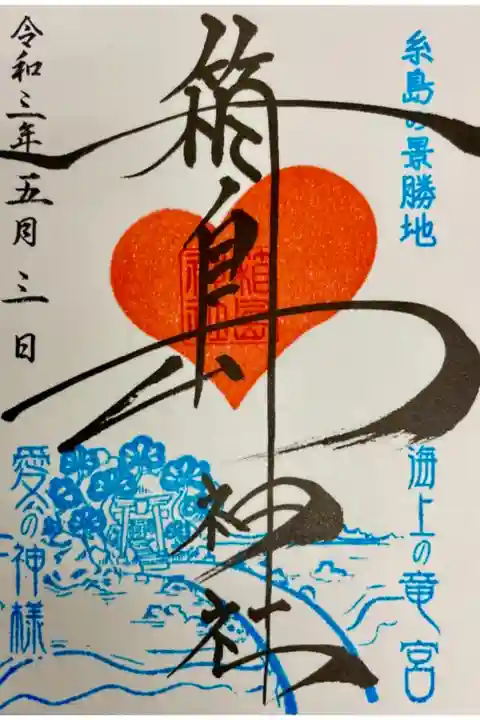 糸島の景勝地
海上の竜宮
箱島神社
箱島
神社
令和三年五月三日
愛の神様